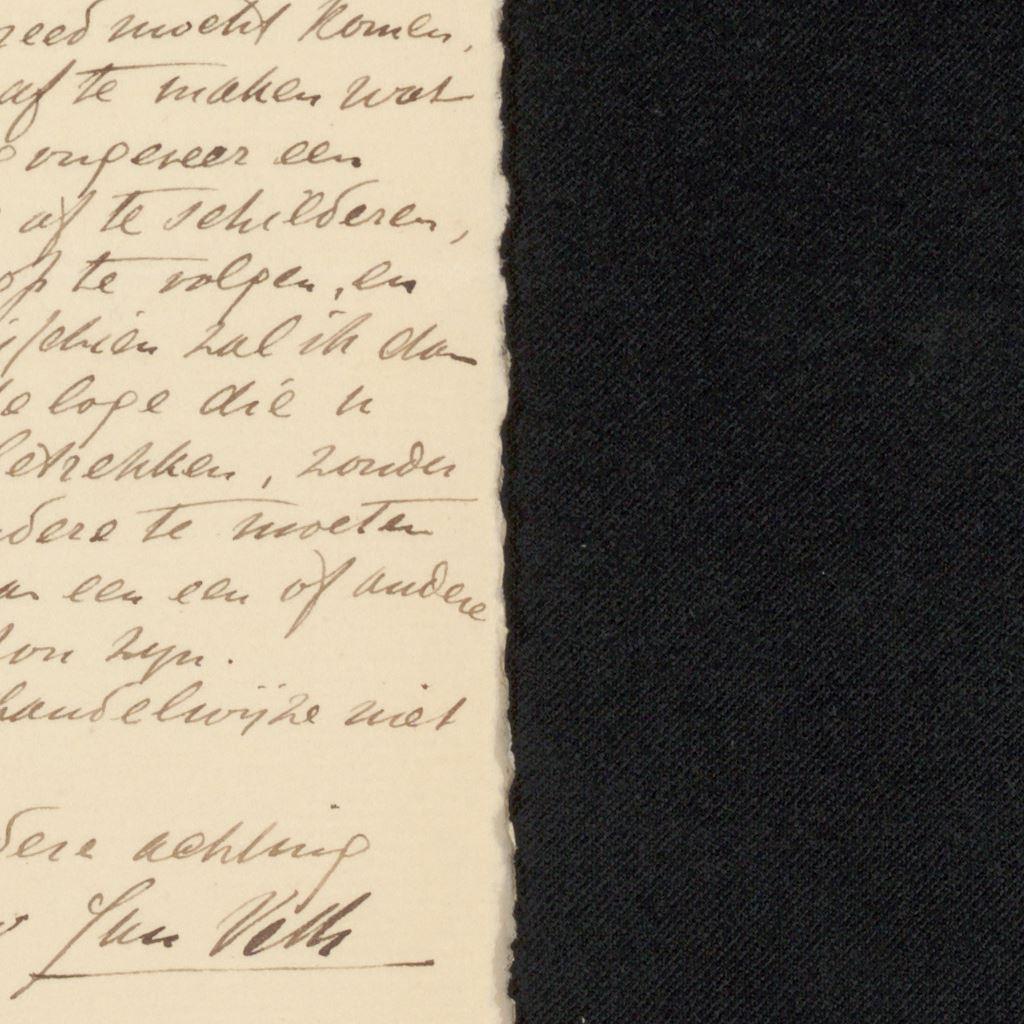 reed mocht komen,
af te maken wat
ongeveer een
af te schilderen,
op te volgen, en
schien zal ik dan
loge die u
betrekken, zonder
dere te moeten
een een of andere
zyn.
handelwijze niet
dere achting
Jan Veth